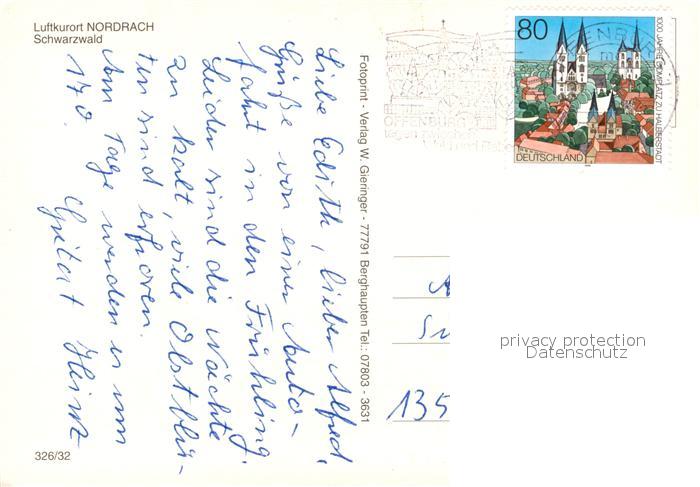 Luftkurort NORDRACH
Schwarzwald
Liebe Edith, lieber Alfred,
Grüße von einer Auto-
fahrt in den Frühling.
Leider sind die Nächte
zu kalt, viele Obstblü-
ten sind erfroren.
Am Tage werden es um
17°.
Heinz
326/32
Fotoprint - Verlag W. Gieringer - 77791 Berghaupten Tel.: 07803 - 3631
OFFENBURG
80
1000 JAHRE DOMPLATZ ZU HALBERSTADT
DEUTSCHLAND
135
privacy protection
Datenschutz